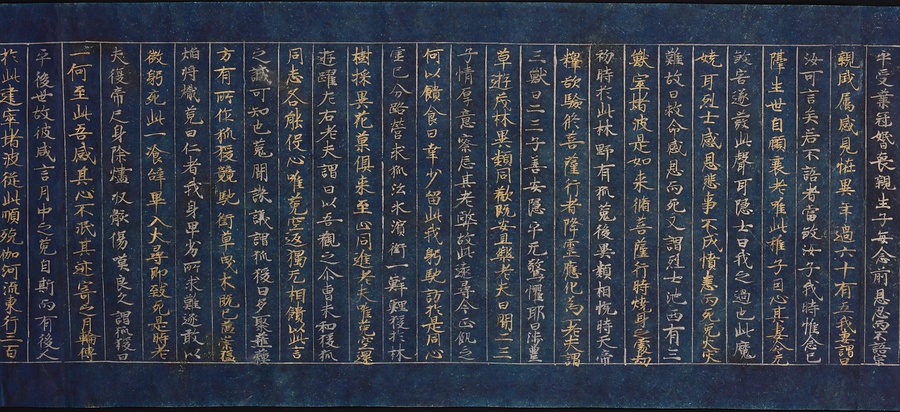 乎受業冠婚喪親生子每念前恩忍而不語宗
親戚屬咸見恠異年過六十有五我妻謂曰
汝可言矣若不語者當敓汝子我時惟念已
隔生世自顧衰老唯此稚子因止其妻令无
敓害遂發此聲耳隱士曰我之過也此魔
嬈耳烈士感恩悲事不成憤恚而死免火灾
難故曰救命感恩而死又謂烈士池西有三
獸窣堵波是如來脩菩薩行時燒身之處劫
初時於此林野有狐菟猨異類相悅時天帝
釋欲驗脩菩薩行者降靈應化為老夫謂
三獸曰二三子善安隱乎无驚懼耶曰涉豐
草遊茂林異類同歡既安且樂老夫曰聞二三
子情厚意密忘其老弊故此遠尋今正飢乏
何以饋食曰幸少留此我躬馳訪於是同心
虛已分路營求狐沿水濱銜一鮮鯉猨於林
樹採異花菓俱來至止同進老夫唯菟空還
遊躍左右老夫謂曰以吾觀之尒曹未和猨狐
同志各能役心唯菟空返獨无相饋以此言
之誠可知也菟聞譏議謂狐猨曰多聚蘸蘇
方有所作狐猨競馳銜草曳木既已蘊崇猛
焰將熾菟曰仁者我身卑劣所求難遂敢以
微躬充此一飡辭畢入火尋即致死是時老
夫復帝尺身除燼收骸傷歎良久謂狐猨曰
一何至此吾感其心不泯其迹寄之月輪傳
乎後世故彼咸言月中之菟自斯而有後人
於此建窣堵波從此順殑伽河流東行三百